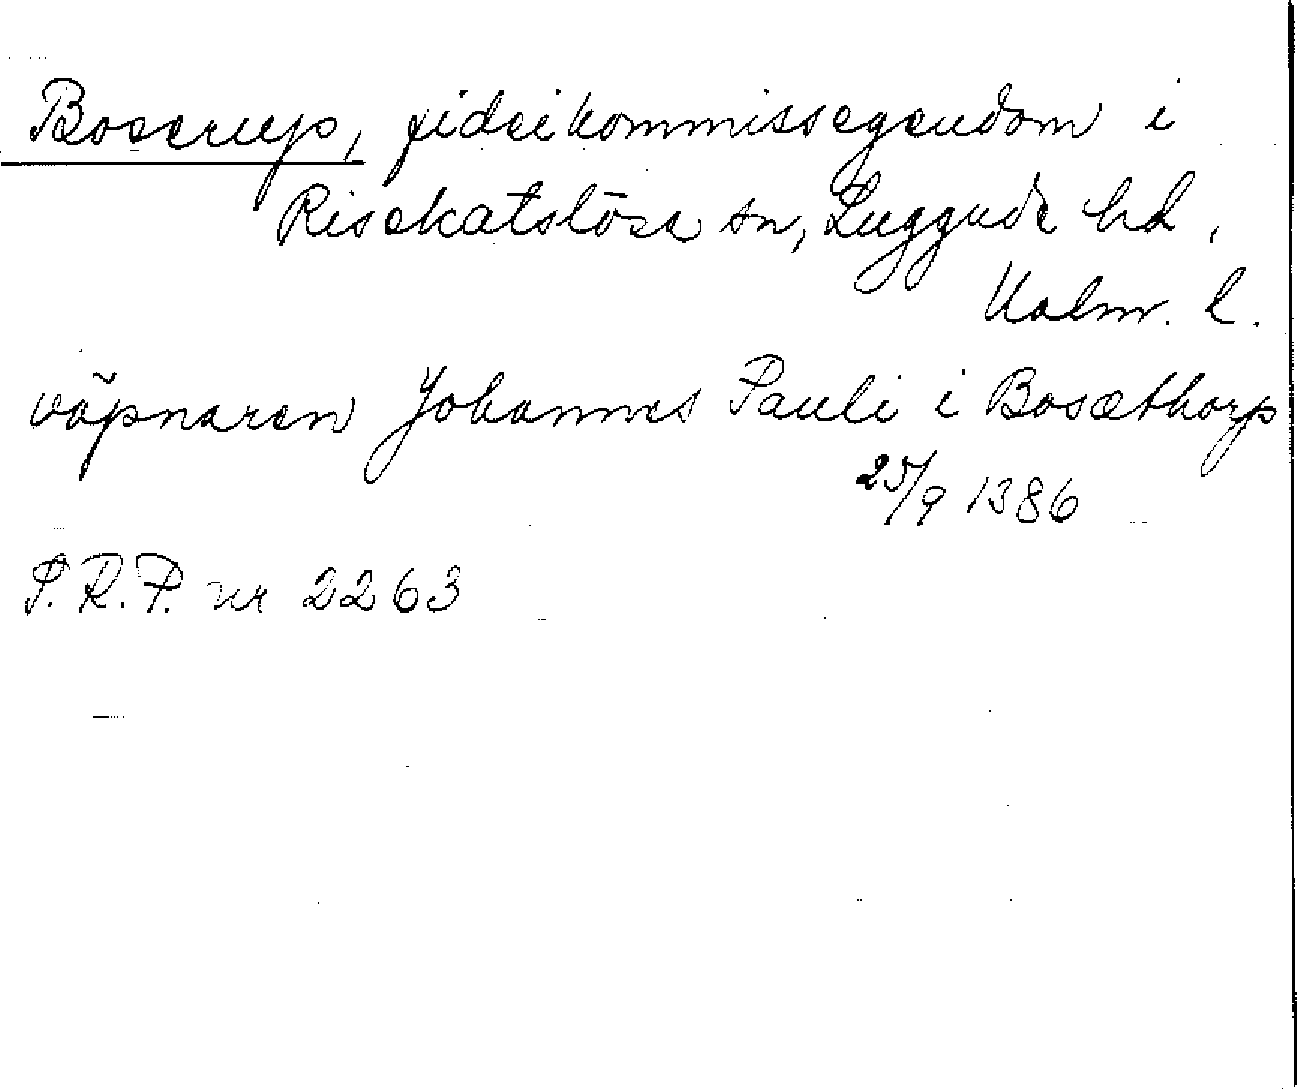 Boserup, fideikommissegendom i
Risekatslösa sn, Luggude hd,
Malm. l.
väpnaren Johannes Pauli i Bosæthorp
25/9 1386
S.R.P. nr 2263